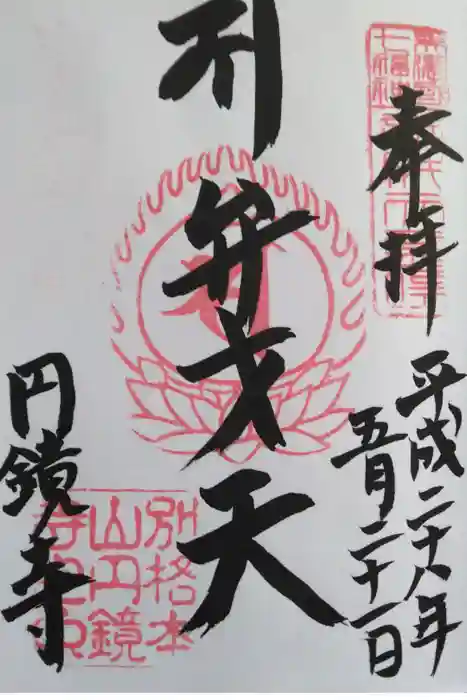 奉拝
平成二十八年
五月二十一日
弁才天
円鏡寺
別格本
山円鏡
寺之印